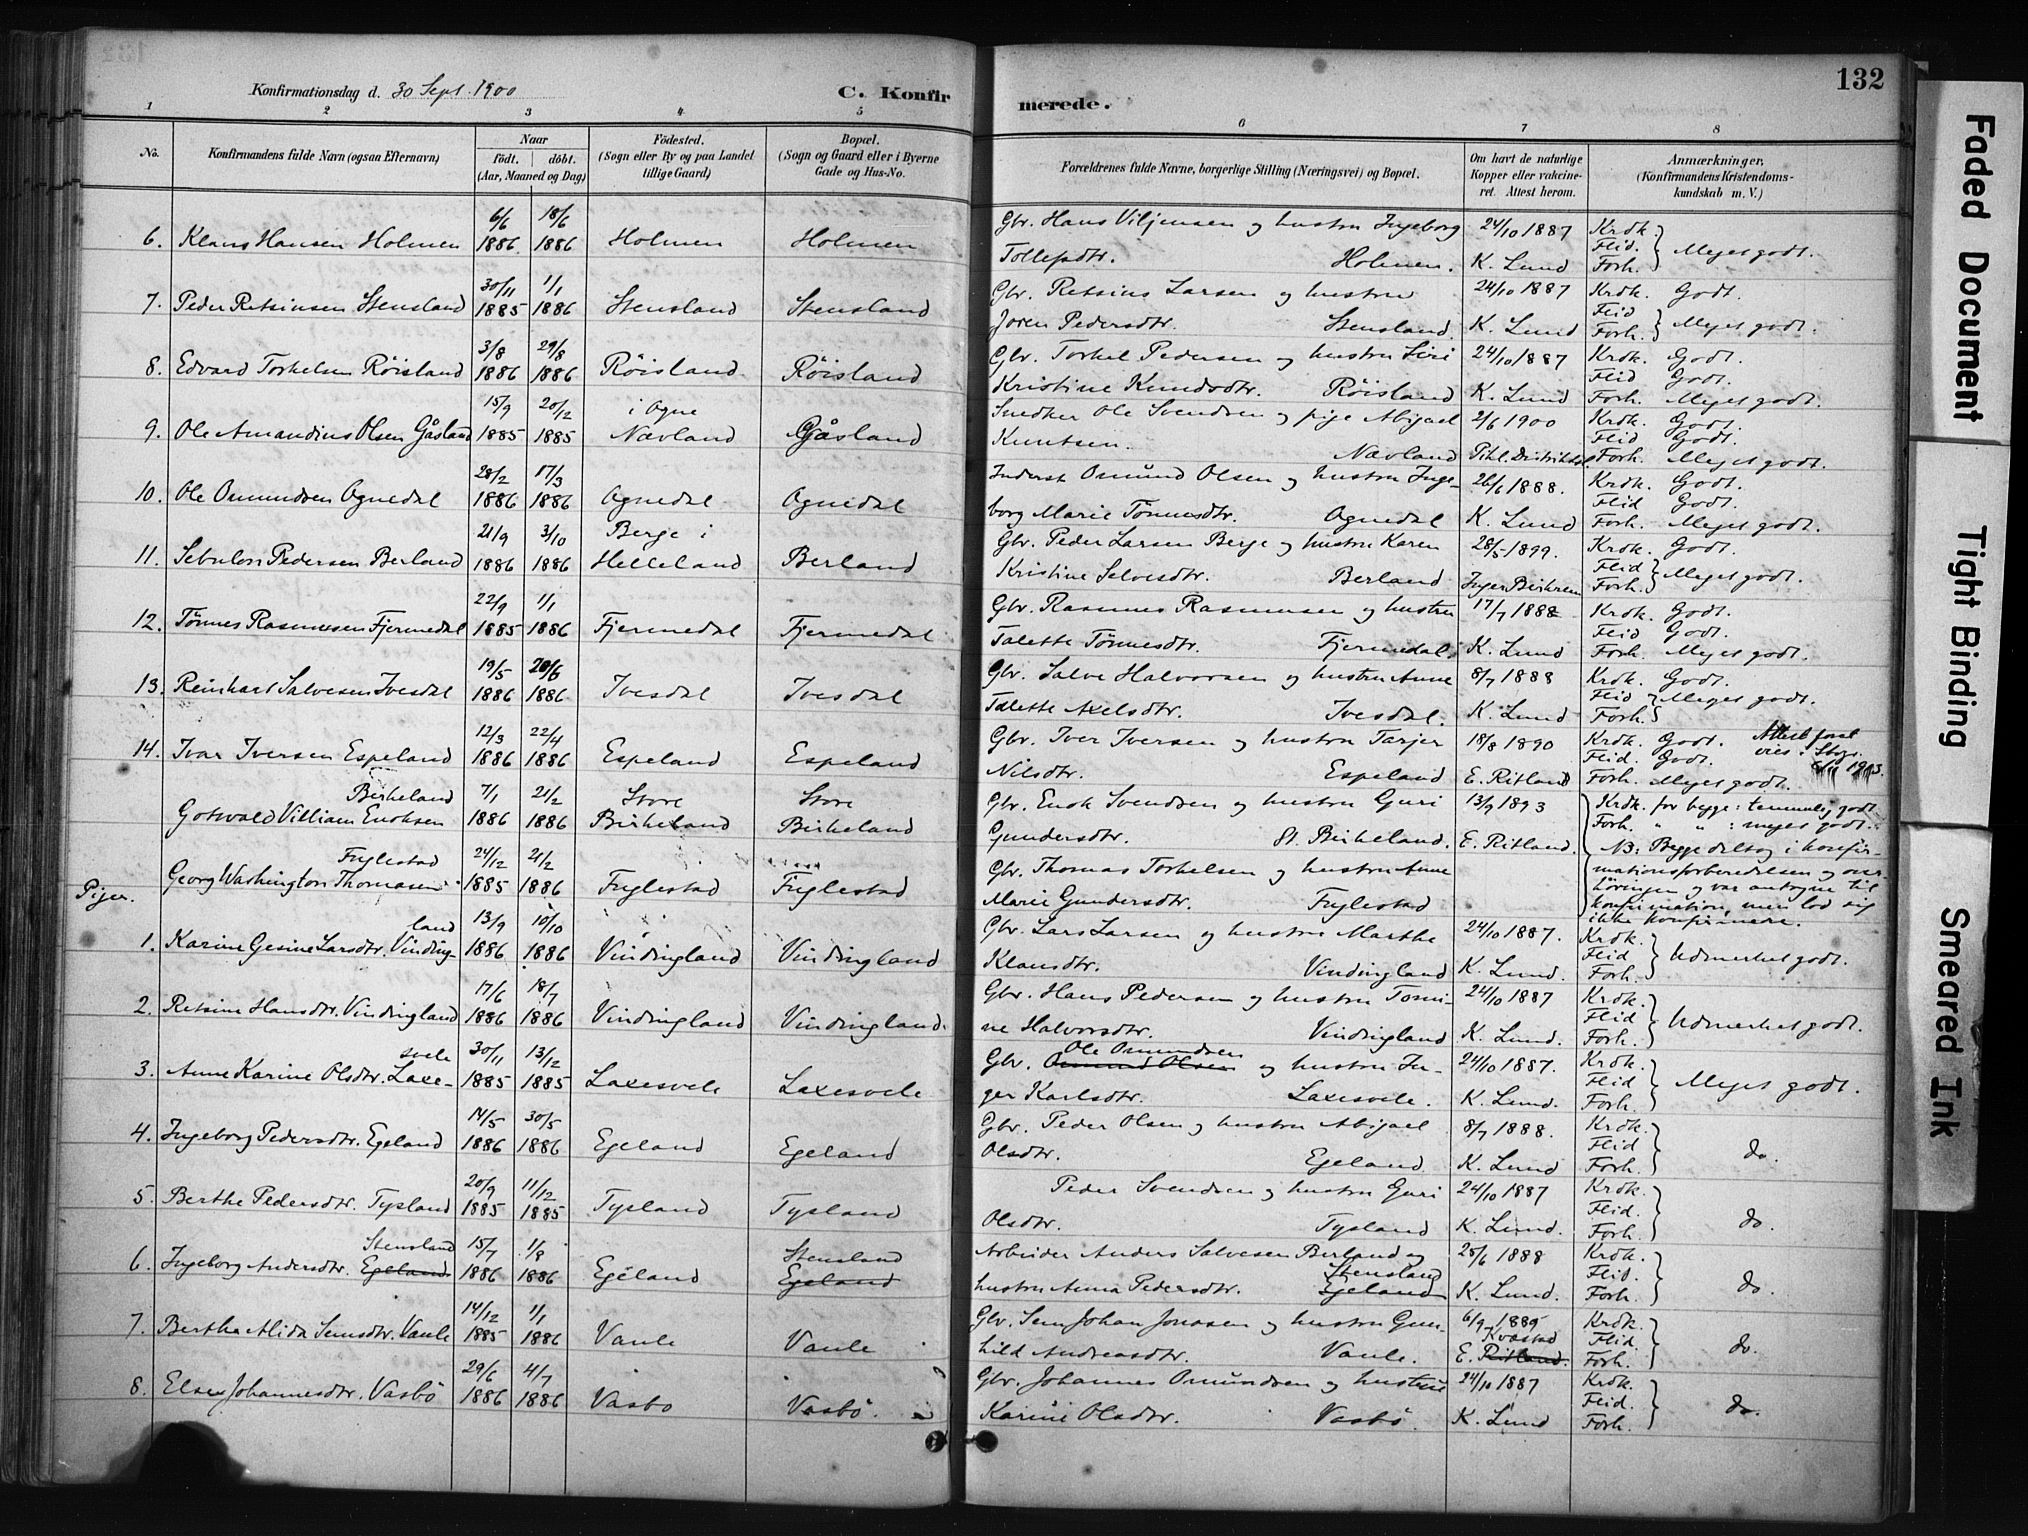 132
Konfirmationsdag d. 30 Sept. 1900
C. Konfirmerede.
1 2 3 4 5 6 7 8
No. Konfirmandens fulde Navn (ogsaa Efternavn) Naar født. døbt. (Aar, Maaned og Dag) Fødested. (Sogn eller By og paa Landet tillige Gaard) Bopæl. (Sogn og Gaard eller i Byerne Gade og Hus-No. Forældrenes fulde Navne, borgerlige Stilling (Næringsvei) og Bopæl. Om havt de naturlige Kopper eller vakcineret. Attest herom. Anmærkninger. (Konfirmandens Kristendomskundskab m. V.)
6. Klaus Hansen Holmen 6/6 1886 18/6 1886 Holmen Holmen Gbr. Hans Viljensen og hustru Ingeborg Tollefsdtr. Holmen. 24/10 1887 K. Lund Krdk. Flid. Forh. } Meget godt.
7. Peder Retsinsen Stensland 30/11 1885 1/1 1886 Stensland Stensland Gbr. Retsius Larsen og hustru Joren Pedersdtr. Stensland. 24/10 1887 K. Lund Krdk. Godt. Flid Forh. } Meget godt.
8. Edvard Torkelsen Röisland 3/8 1886 29/8 1886 Röisland Röisland Gbr. Torkel Pedersen og hustru Siri Kristine Knudsdtr. Röisland 24/10 1887 K. Lund Krdk. Godt. Flid Godt. Forh. Meget godt.
9. Ole Amandius Olsen Gåsland 15/9 1885 20/12 1885 i Ogne Nævland Gåsland Snedker Ole Svendsen og pige Abigael Knutsen. Nævland 2/6 1900 Pihl. Distriktsl. Krdk. Godt. Flid Godt. Forh. Meget godt.
10. Ole Omundsen Ognedal 28/2 1886 17/3 1886 Ognedal Ognedal Inderst Omund Olsen og hustru Ingeborg Marie Tönnesdtr. Ognedal 26/6 1888. K. Lund Krdk. Godt. Flid Godt. Forh. Meget godt.
11. Sebulon Pedersen Berland 21/9 1886 3/10 1886 Berge i Helleland Berland Gbr. Peder Larsen Berge og hustru Karen Kristine Selvesdtr. Berland 28/5 1899. Inger Birkrem Krdk. Godt. Flid Forh. } Meget godt.
12. Tönnes Rasmussen Fjermedal 22/9 1885 1/1 1886 Fjermedal Fjermedal Gbr. Rasmus Rasmussen og hustru Talette Tönnesdtr. Fjermedal. 17/7 1888 K. Lund Krdk. Godt. Flid Godt. Forh. Meget godt.
13. Reinhart Salvesen Ivesdal 19/5 1886 20/6 1886 Ivesdal Ivesdal Gbr. Salve Halvorsen og hustru Anne Talette Axelsdtr. Ivesdal. 8/7 1888 K. Lund Krdk. Godt. Flid Forh. } Meget godt.
14. Ivar Iversen Espeland 12/3 1886 22/4 1886 Espeland Espeland Gbr. Iver Iversen og hustru Tarjer Nilsdtr. Espeland 18/8 1890 E. Ritland Krdk. Godt. Flid. Godt. Forh. Meget godt. 1913.
Gotwald Villiam Enoksen Birkeland 7/1 1886 21/2 1886 Store Birkeland Store Birkeland Gbr. Enok Svendsen og hustru Guri Gundersdtr. St. Birkeland. 13/9 1893 E. Ritland. Krdk. for begge: temmelig godt Forh. " " : meget godt. NB: Begge deltog i konfir-
Georg Washington Thomasen Fuglestad 24/12 1885 21/2 1886 Fuglestad Fuglestad Gbr. Thomas Torkelsen og hustru Anne Marie Gundersdtr. Fuglestad mationsforberedelsen og overhöringen og var antagne til konfirmation, men lod sig ikke konfirmere.
Piger.
1. Karine Gesine Larsdtr. Vindingland 13/9 1886 10/10 1886 Vindingland Vindingland Gbr. Lars Larsen og hustru Marthe Klausdtr. Vindingland 24/10 1887. K. Lund. Krdk. Flid Forh. } Udmerket godt.
2. Retsine Hansdtr. Vindingland 17/6 1886 18/7 1886 Vindingland Vindingland. Gbr. Hans Pedersen og hustru Tomine Halvorsdtr. Vindingland 24/10 1887 K. Lund. Krdk. Flid Forh. } Udmerket godt.
3. Anne Karine Olsdtr. Laxesvele 30/11 1885 13/12 1885 Laxesvele Laxesvele Gbr. Omund Olsen Ole Omundsen og hustru Inger Karlsdtr. Laxesvele. 24/10 1887. K. Lund. Krdk. Flid Forh. } Meget godt.
4. Ingeborg Pedersdtr. Egeland 14/5 1886 30/5 1886 Egeland Egeland Gbr. Peder Olsen og hustru Abigael Olsdtr. Egeland 8/7 1888. K. Lund Krdk. Flid Forh. } do.
5. Berthe Pedersdtr. Tysland 20/9 1885 11/12 1885 Tysland Tysland Peder Svendsen og hustru Guri Olsdtr. Tysland 24/10 1887 K. Lund. Krdk. Flid. Forh. } do.
6. Ingeborg Andersdtr. Egeland Stensland 15/7 1886 1/8 1886 Egeland Stensland Egeland Arbeider Anders Salvesen Berland og hustru Anna Pedersdtr. Stensland Egeland 28/6 1888 K. Lund. Krdk. Flid. Forh. } do.
7. Bertha Alida Semsdtr. Vaule 14/12 1885 1/1 1886 Vaule Vaule Gbr. Sem Johan Jonasen og hustru Gunhild Andreasdtr. Vaule. 6/9 1885 E. Kvæstad Ritland. Krdk. Flid. Forh. } do.
8. Elsex Johannesdtr. Vasbö 29/6 1886 4/7 1886 Vasbo Vasbö. Gbr. Johannes Omundsen og hustru Karine Olsdtr. Vasbö. 24/10 1887 K. Lund Krdk. Flid. Forh. } do.
Faded Document
Tight Binding
Smeared Ink